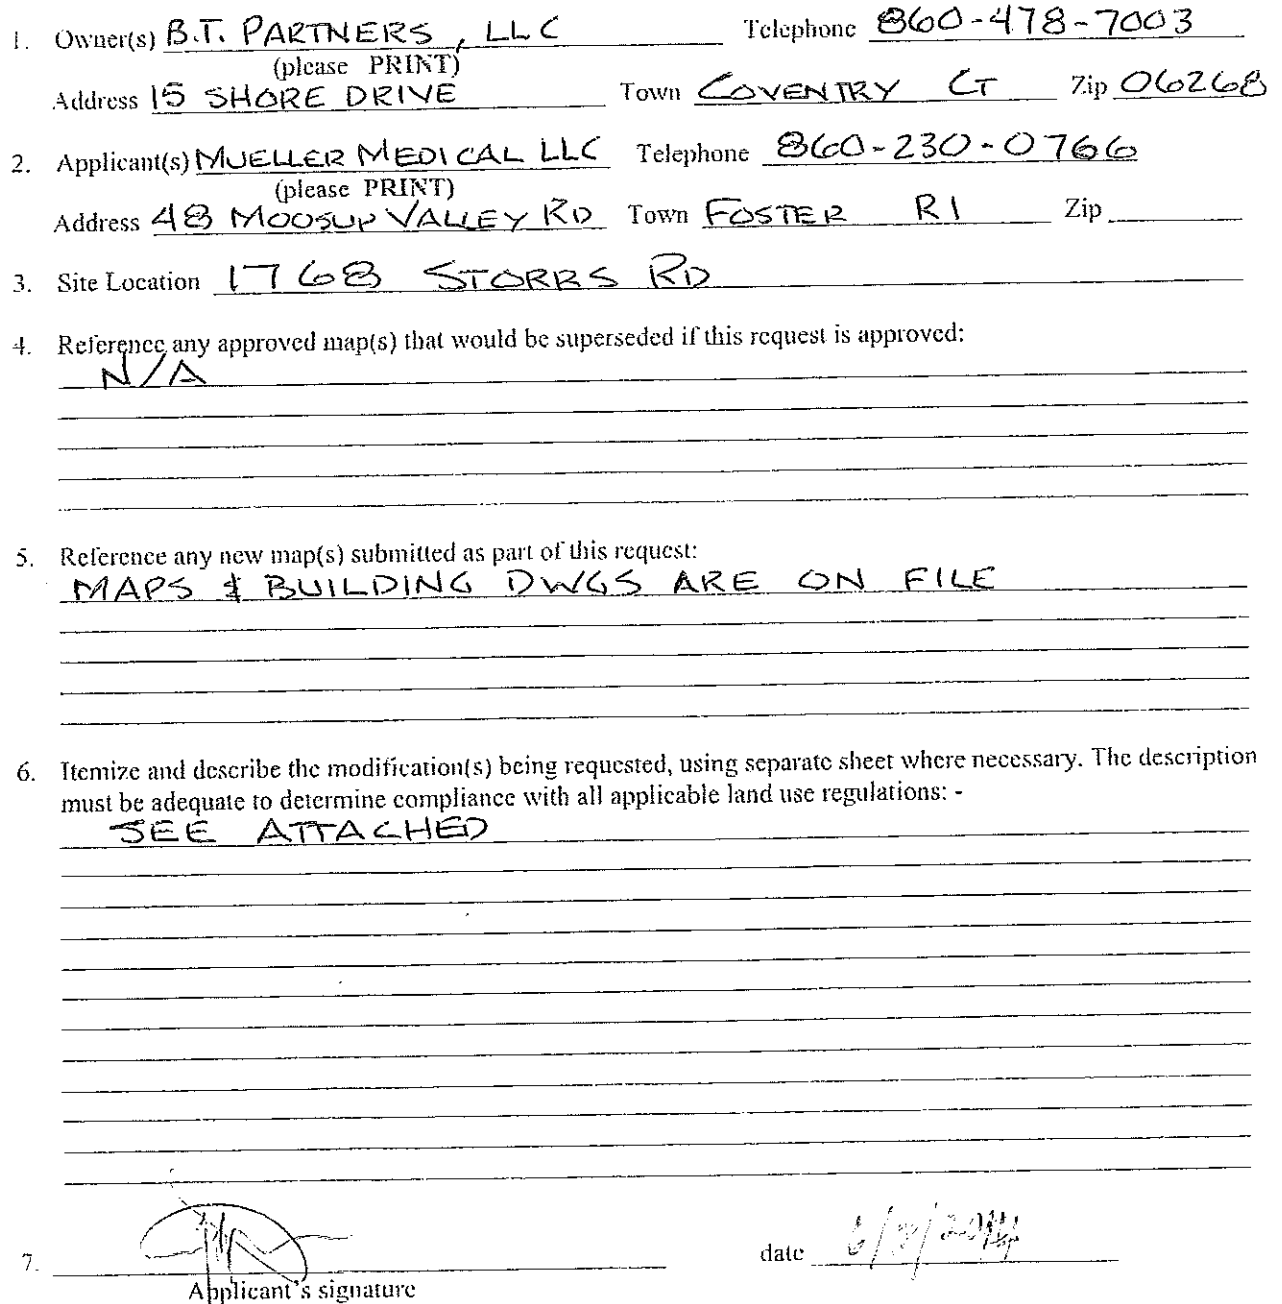 1. Owner(s) B.T. PARTNERS, LLC Telephone 860-478-7003
(please PRINT)
Address 15 SHORE DRIVE Town COVENTRY CT Zip 06268
2. Applicant(s) MUELLER MEDICAL LLC Telephone 860-230-0766
(please PRINT)
Address 48 MOOSUP VALLEY RD Town FOSTER RI Zip
3. Site Location 1768 STORRS RD
4. Reference any approved map(s) that would be superseded if this request is approved:
N/A
5. Reference any new map(s) submitted as part of this request:
MAPS & BUILDING DWGS ARE ON FILE
6. Itemize and describe the modification(s) being requested, using separate sheet where necessary. The description
must be adequate to determine compliance with all applicable land use regulations: -
SEE ATTACHED
7. date
Applicant's signature